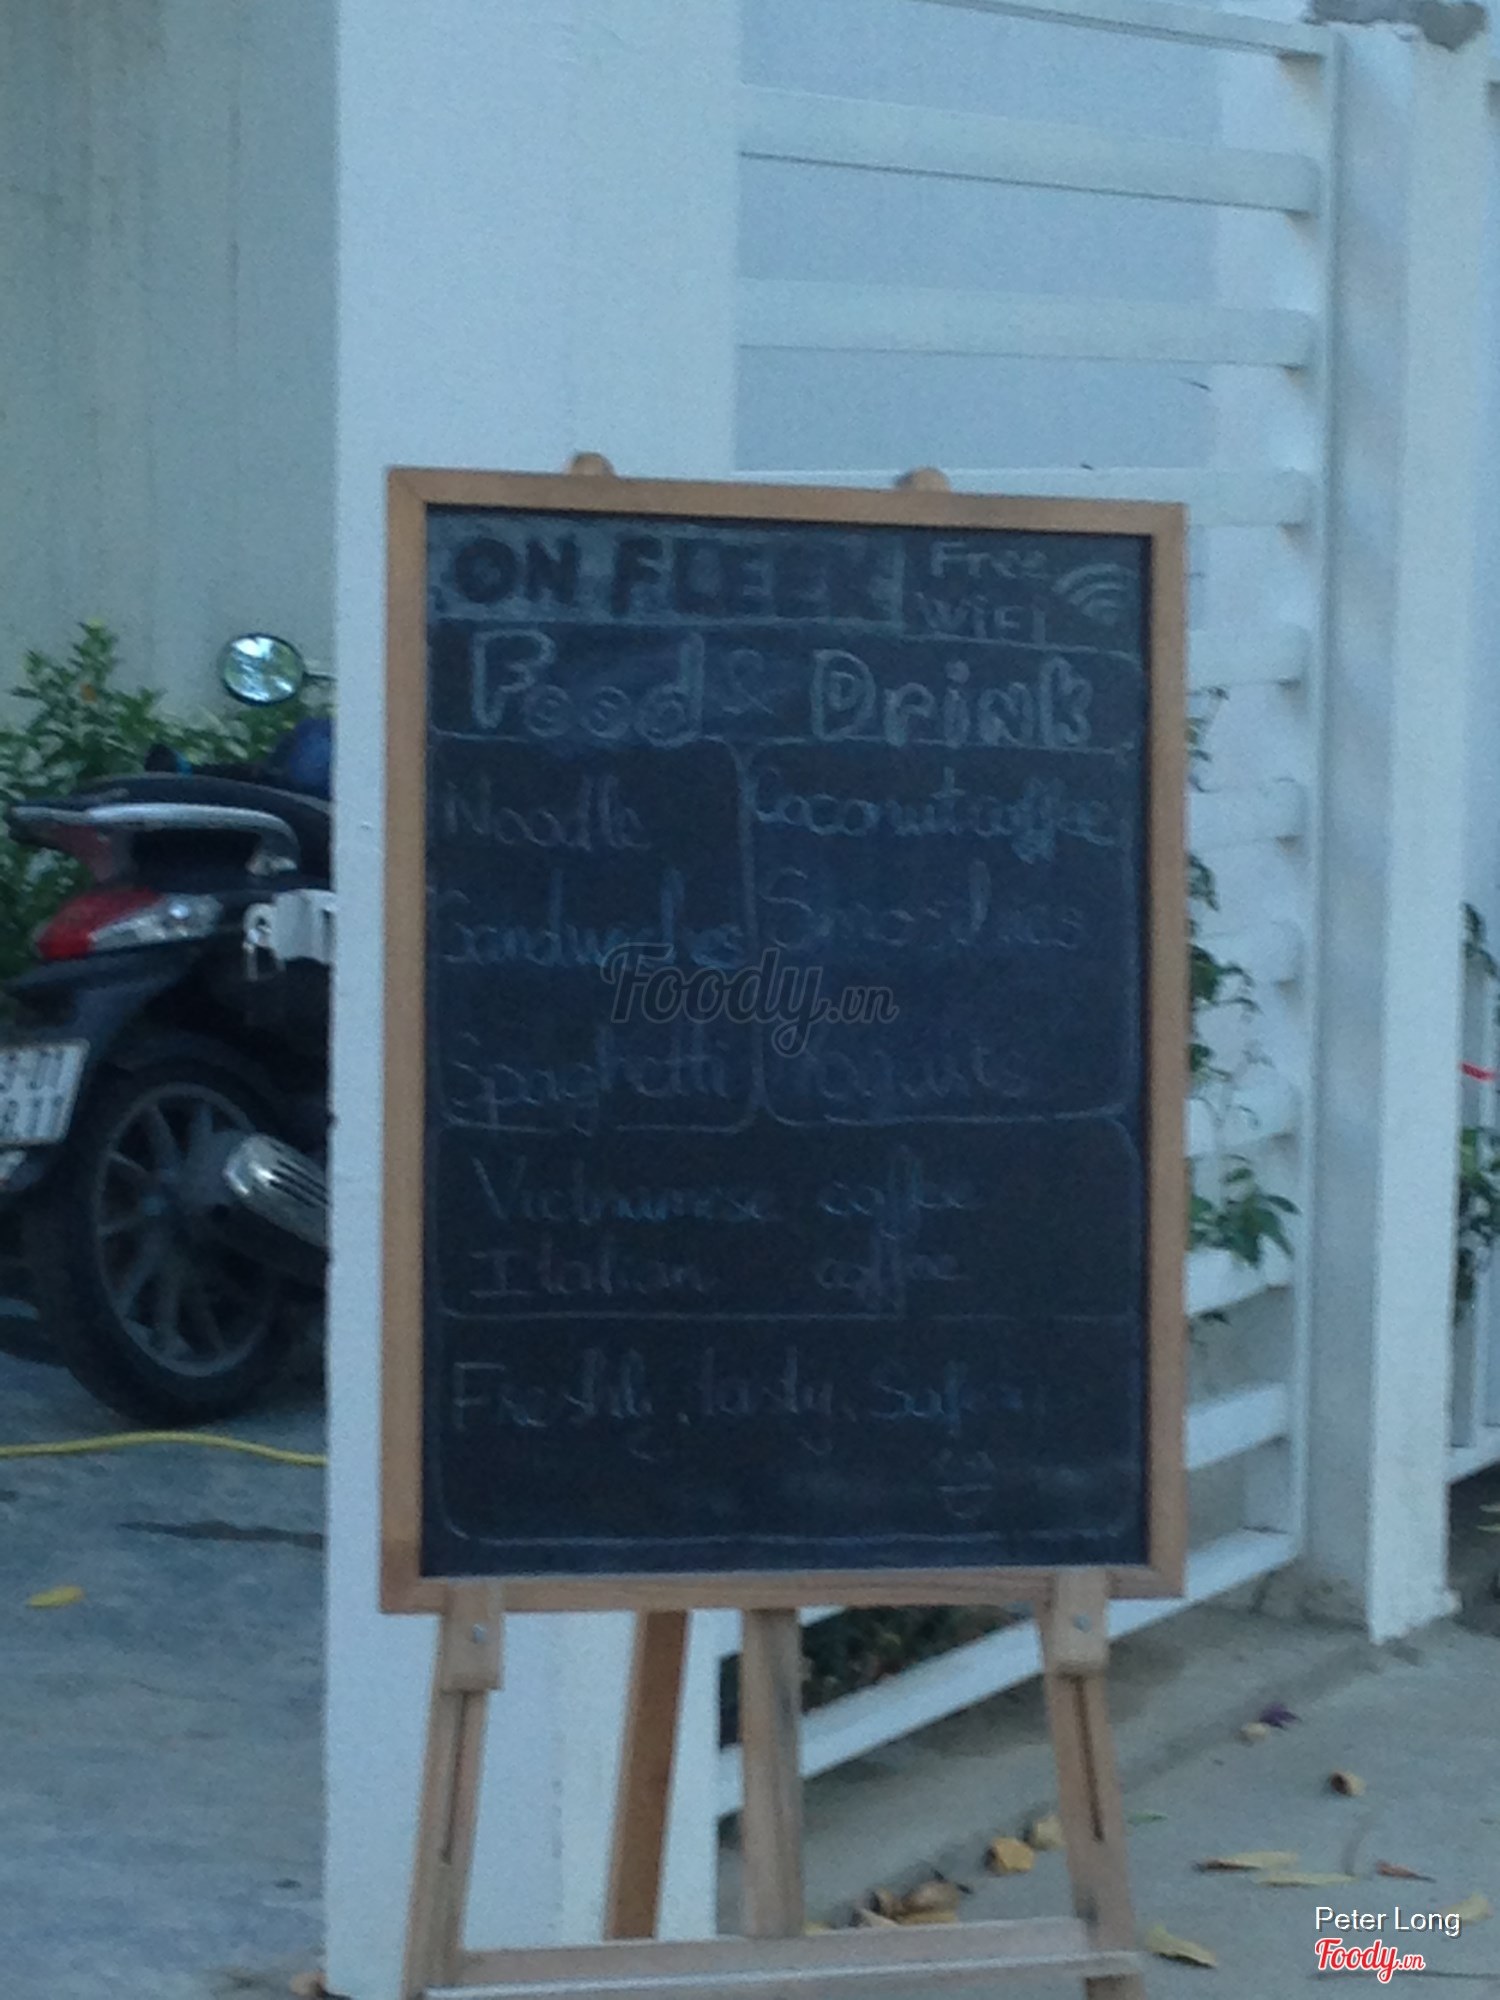 ON FLEEK
Free
WiFi
Food & Drink
Noodle
Sandwiches
Spaghetti
Coconut coffee
Smoothies
Yogurts
Vietnamese coffee
Italian coffee
Freshly, tasty,
Foody.vn
Peter Long
Foody.vn